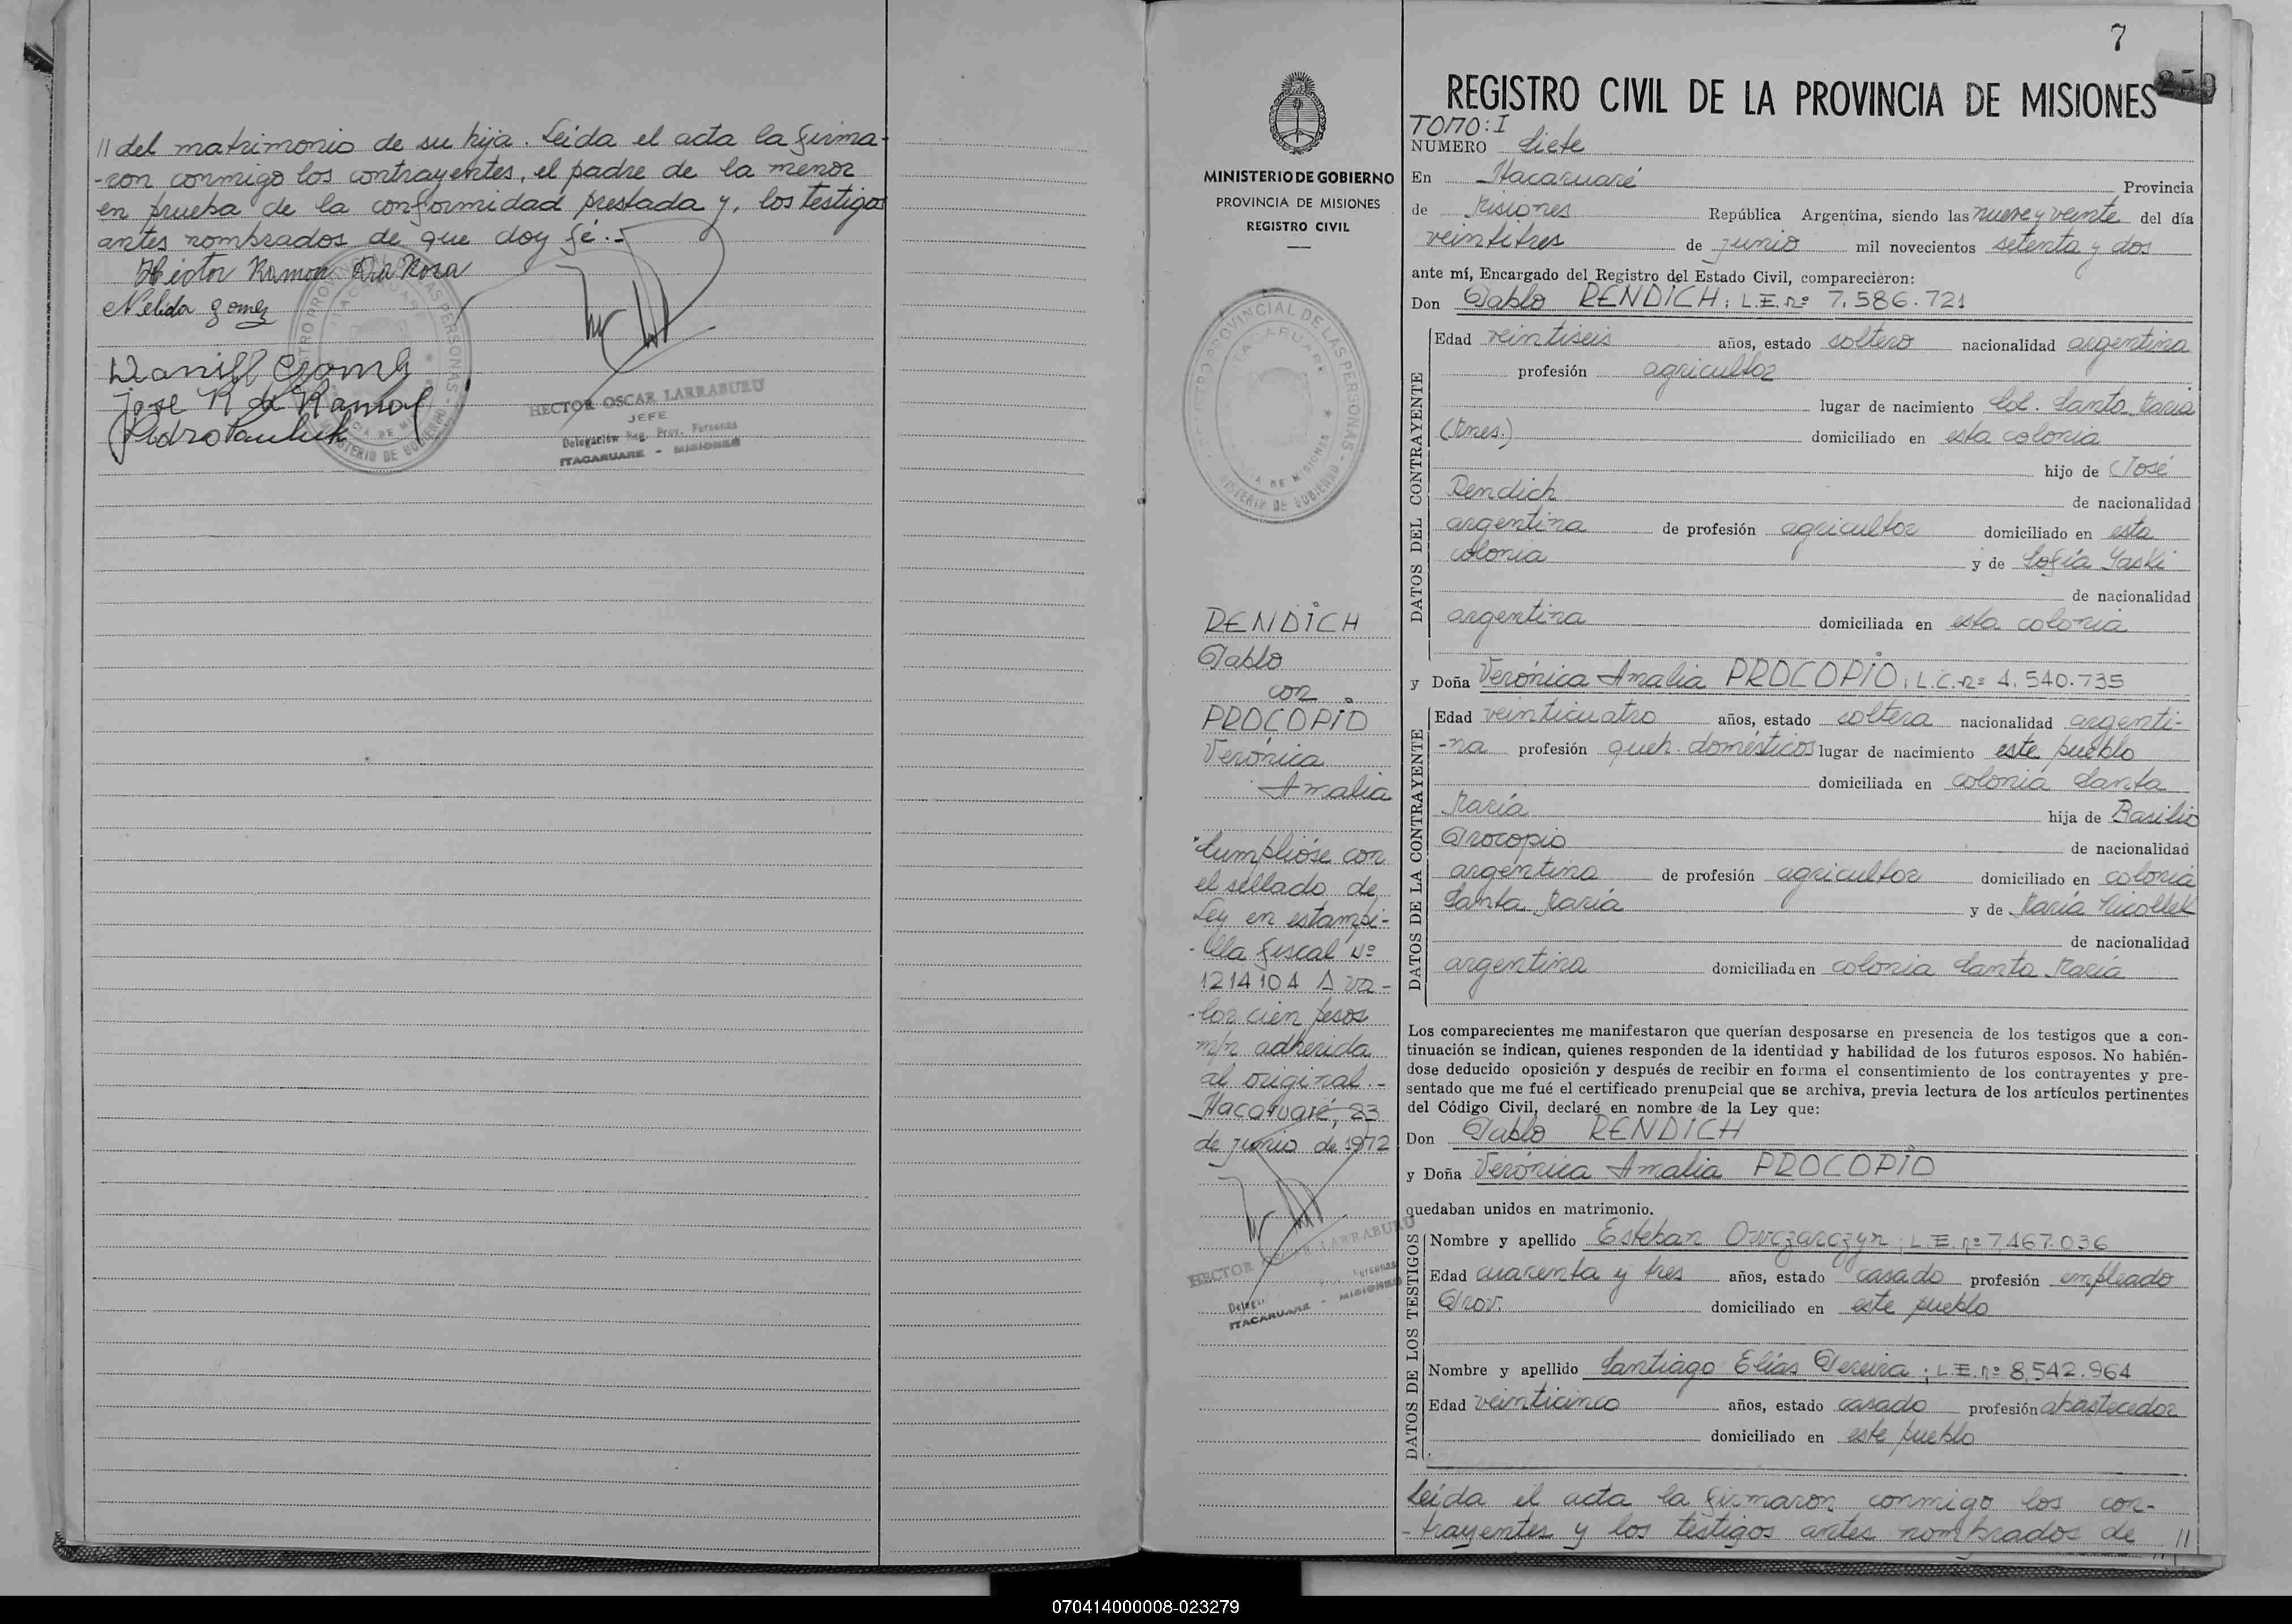 // del matrimonio de su hija. Leida el acta la firma-
-ron conmigo los contrayentes, el padre de la menor
en prueba de la conformidad prestada y, los testigos
antes nombrados de que doy fé.-
Héctor Ramon Da Rosa
Nélida gomez
Jose R da Ramos
HECTOR OSCAR LARRABURU
JEFE
Delegación Reg. Prov. Personas
ITACARUARE - MISIONES
7
250
MINISTERIO DE GOBIERNO
PROVINCIA DE MISIONES
REGISTRO CIVIL
RENDICH
Pablo
con
PROCOPIO
Verónica
Amalia
Cumplióse con
el sellado de
Ley en estampi-
-lla fiscal Nº
1214104 A va-
-lor cien pesos
m/n adherida
al original.-
Itacaruaré, 23
de junio de 1972
HECTOR LARRABURU
ITACARUARE - MISIONES
REGISTRO CIVIL DE LA PROVINCIA DE MISIONES
TOMO: I
NUMERO Siete
En Itacaruaré Provincia
de Misiones República Argentina, siendo las nueve y veinte del día
veintitres de junio mil novecientos setenta y dos
ante mí, Encargado del Registro del Estado Civil, comparecieron:
Don Pablo RENDICH; L.E. nº 7.586.721
DATOS DEL CONTRAYENTE
Edad veintiseis años, estado soltero nacionalidad argentina
profesión agricultor
lugar de nacimiento Col. Santa María
(Mnes.) domiciliado en esta colonia
hijo de José
Rendich de nacionalidad
argentina de profesión agricultor domiciliado en esta
colonia y de Sofía Yaski
de nacionalidad
argentina domiciliada en esta colonia
y Doña Verónica Amalia PROCOPIO; L.C. nº 4.540.735
DATOS DE LA CONTRAYENTE
Edad veinticuatro años, estado soltera nacionalidad argenti-
-na profesión queh. domésticos lugar de nacimiento este pueblo
domiciliada en colonia Santa
María hija de Basilio
Procopio de nacionalidad
argentina de profesión agricultor domiciliado en colonia
Santa María y de María
de nacionalidad
argentina domiciliada en colonia Santa María
Los comparecientes me manifestaron que querían desposarse en presencia de los testigos que a con-
tinuación se indican, quienes responden de la identidad y habilidad de los futuros esposos. No habién-
dose deducido oposición y después de recibir en forma el consentimiento de los contrayentes y pre-
sentado que me fué el certificado prenupcial que se archiva, previa lectura de los artículos pertinentes
del Código Civil, declaré en nombre de la Ley que:
Don Pablo RENDICH
y Doña Verónica Amalia PROCOPIO
quedaban unidos en matrimonio.
DATOS DE LOS TESTIGOS
Nombre y apellido Esteban Owczarczyn; L.E. nº 7.467.036
Edad cuarenta y tres años, estado casado profesión empleado
Prov. domiciliado en este pueblo
Nombre y apellido Santiago Elías Pereira; L.E. nº 8.542.964
Edad veinticinco años, estado casado profesión abastecedor
domiciliado en este pueblo
Leida el acta la firmaron conmigo los con-
-trayentes y los testigos antes nombrados de //
070414000008-023279